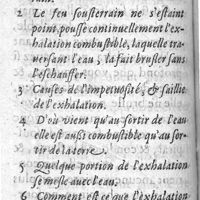 2 Le feu sousterrain ne s'estaint
point, pousse continuellement l'ex-
halation combustible, laquelle tra-
uersant l'eau, la fait brusler sans
l'eschauffer.
3 Causes de l'impetuosité, & saillie
de l'exhalation.
4 D'où vient qu'au sortir de l'eau
elle est aussi combustible qu'au sor-
tir de la terre.
5 Quelque portion de l'exhalation
se mesle auec l'eau.
6 Comment est ce que l'exhalation